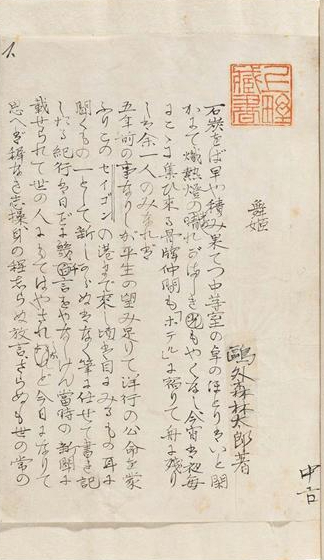 舞姫
鷗外森林太郎著
石炭をば早や積み果てつ中等室の卓のほとりはいと閑
かにて熾熱燈の晴れがましきもやくなし今宵は夜毎
にこゝに集ひ来る骨牌仲間も「ホテル」に宿りて舟に残り
しは余一人のみなれば
五年前の事なりしが平生の望み足りて洋行の公命を蒙
ふりこのセイゴンの港まで来し頃は目にみるもの耳に
聞くもの一として新しからぬはなく筆に任せて書き記
したる紀行は日だに幾千言をやなしけん当時の新聞に
載せられて世の人にもてはやされしかど今日になりて
思へば穉なき志操身の程しらぬ放言さらぬも世の常の